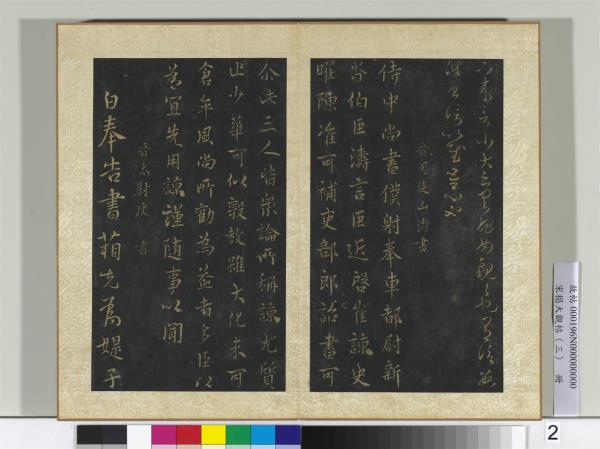 晉司徒山濤書
侍中尚書僕射奉車都尉新
沓伯臣濤言臣近啓崔諒史
曜陳准可補吏部郎詔書可
尒此三人皆衆論所稱諒尤質
止少華可以敦教雖大化未可
倉卒風尚所勸為益者多臣以
為宜先用諒謹隨事以聞
晉太尉庾 書
白奉告書箱先為媞子
故帖 000196N000000000
宋搨大觀帖（三） 冊
2